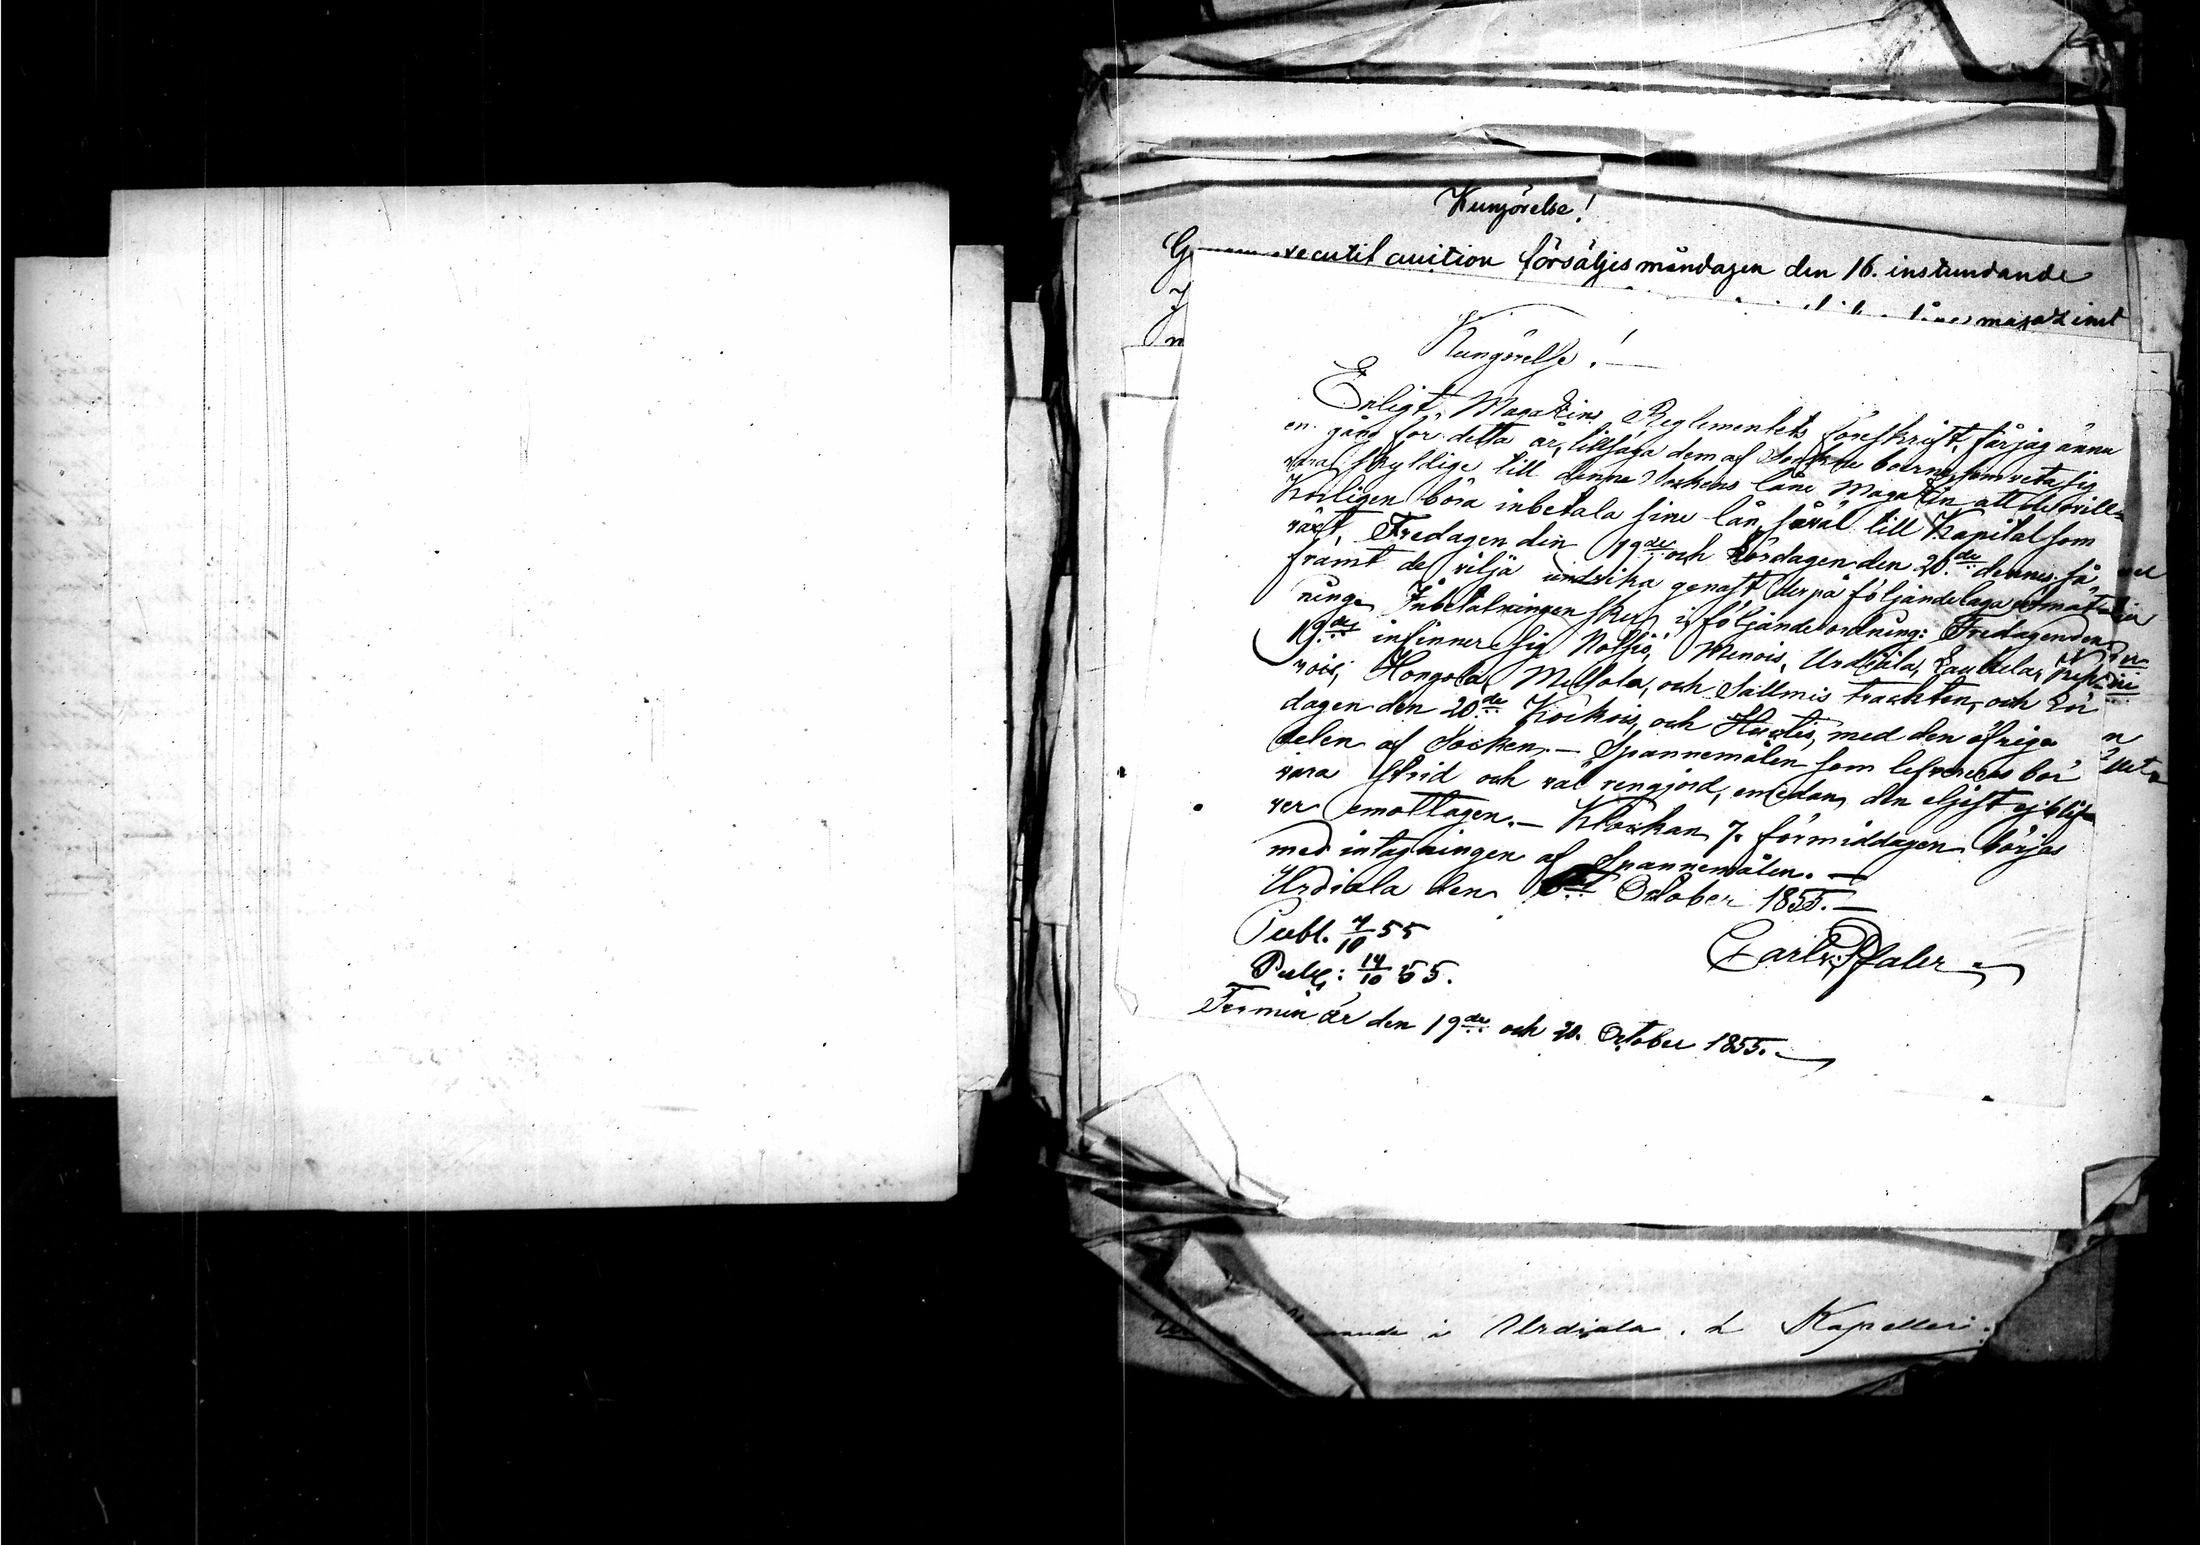 Kungörelse!
executif auction försäljes måndagen den 16. instundande
magazinet
Kungörelse!
Enligt Magazins Reglementets föreskrift, får jag ännu
en gång för detta år, tillsäga dem af Socken boerne, som veta sig
vara skyldige till denne Sockens låne Magazin att de ovill-
korligen böra inbetala sine lån, såväl till Kapital som
växt, Fredagen den 19de och Lördagen den 20de dennes så
framt de vilja undvika genast derpå följande laga utmät-
ning. Inbetalningen sker i följande ordning: Fredagen den
19de infinner sig Nolsjö, Menois, Urdiala, Laukela,
rois, Hongola, Mellola, och Sallmis trackten, och Lör
dagen den 20de Kockois, och Huutis, med den öfriga
delen af Socken. — Spannemålen som lefvereras bör
vara strid och väl rengjord, emedan den eljest ej blif-
ver emottagen. — Klockan 7. förmiddagen börjas
med intagningen af Spannemålen. —
Urdiala den October 1855. —
Publ. 7/10 55
Carl v: Pfaler
Publ: 14/10 55.
Termin är den 19de och 20. October 1855. —
i Urdiala. L Kapelleri